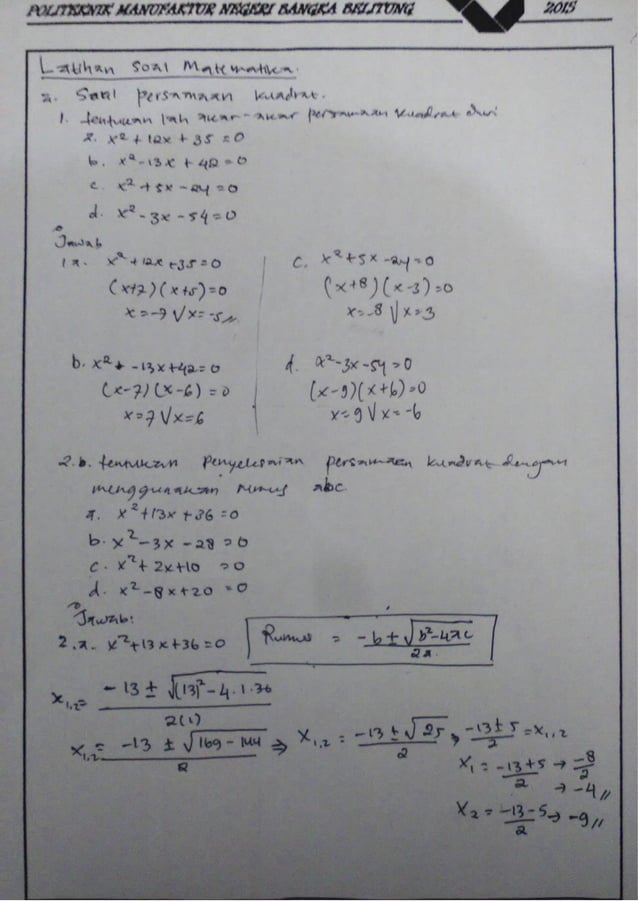 POLITEKNIK MANUFAKTUR NEGERI BANGKA BELITUNG 2015
Latihan Soal Matematika.
a. Soal persamaan kuadrat.
1. tentukan lah akar-akar persamaan kuadrat dari
a. x² + 12x + 35 = 0
b. x² - 13x + 42 = 0
c. x² + 5x - 24 = 0
d. x² - 3x - 54 = 0
Jawab
1a. x² + 12x + 35 = 0
(x+7)(x+5) = 0
x = -7 V x = -5 //
b. x² + -13x + 42 = 0
(x-7)(x-6) = 0
x = 7 V x = 6
c. x² + 5x - 24 = 0
(x+8)(x-3) = 0
x = -8 V x = 3
d. x² - 3x - 54 = 0
(x-9)(x+6) = 0
x = 9 V x = -6
2.b. tentukan Penyelesaian persamaan kuadrat dengan
menggunakan rumus abc
a. x² + 13x + 36 = 0
b. x² - 3x - 28 = 0
c. x² + 2x + 10 = 0
d. x² - 8x + 20 = 0
Jawab:
2.a. x² + 13x + 36 = 0 Rumus = -b ± √b²-4ac / 2a
X₁,₂ = -13 ± √(13)² - 4.1.36 / 2(1)
X₁,₂ = -13 ± √169 - 144 / 2 ⇒ X₁,₂ = -13 ± √25 / 2, -13 ± 5 / 2 = X₁,₂
X₁ = -13 + 5 / 2 → -8 / 2
→ -4 //
X₂ = -13 - 5 / 2 → -9 //